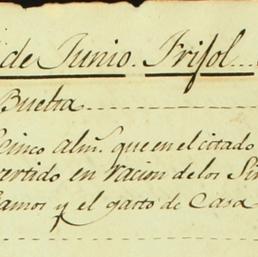 de Junio. Frisol...
Buelta
Cinco alm.s que en el citado
vertido en racion de los Sir
amos y el gasto de Casa